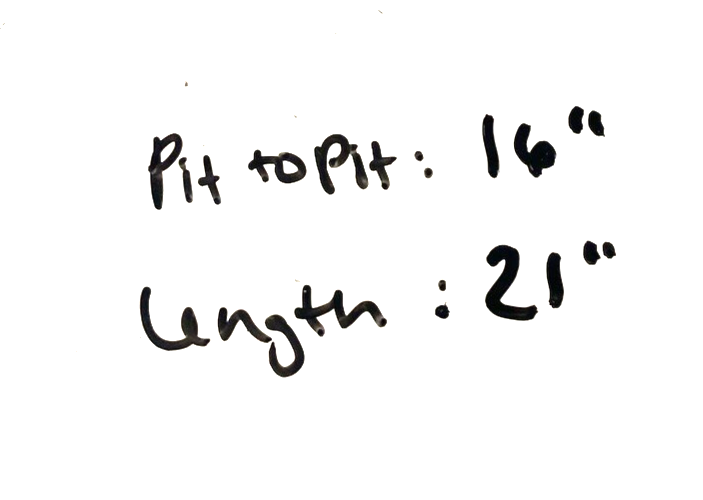 Pit to Pit: 16"
length: 21"